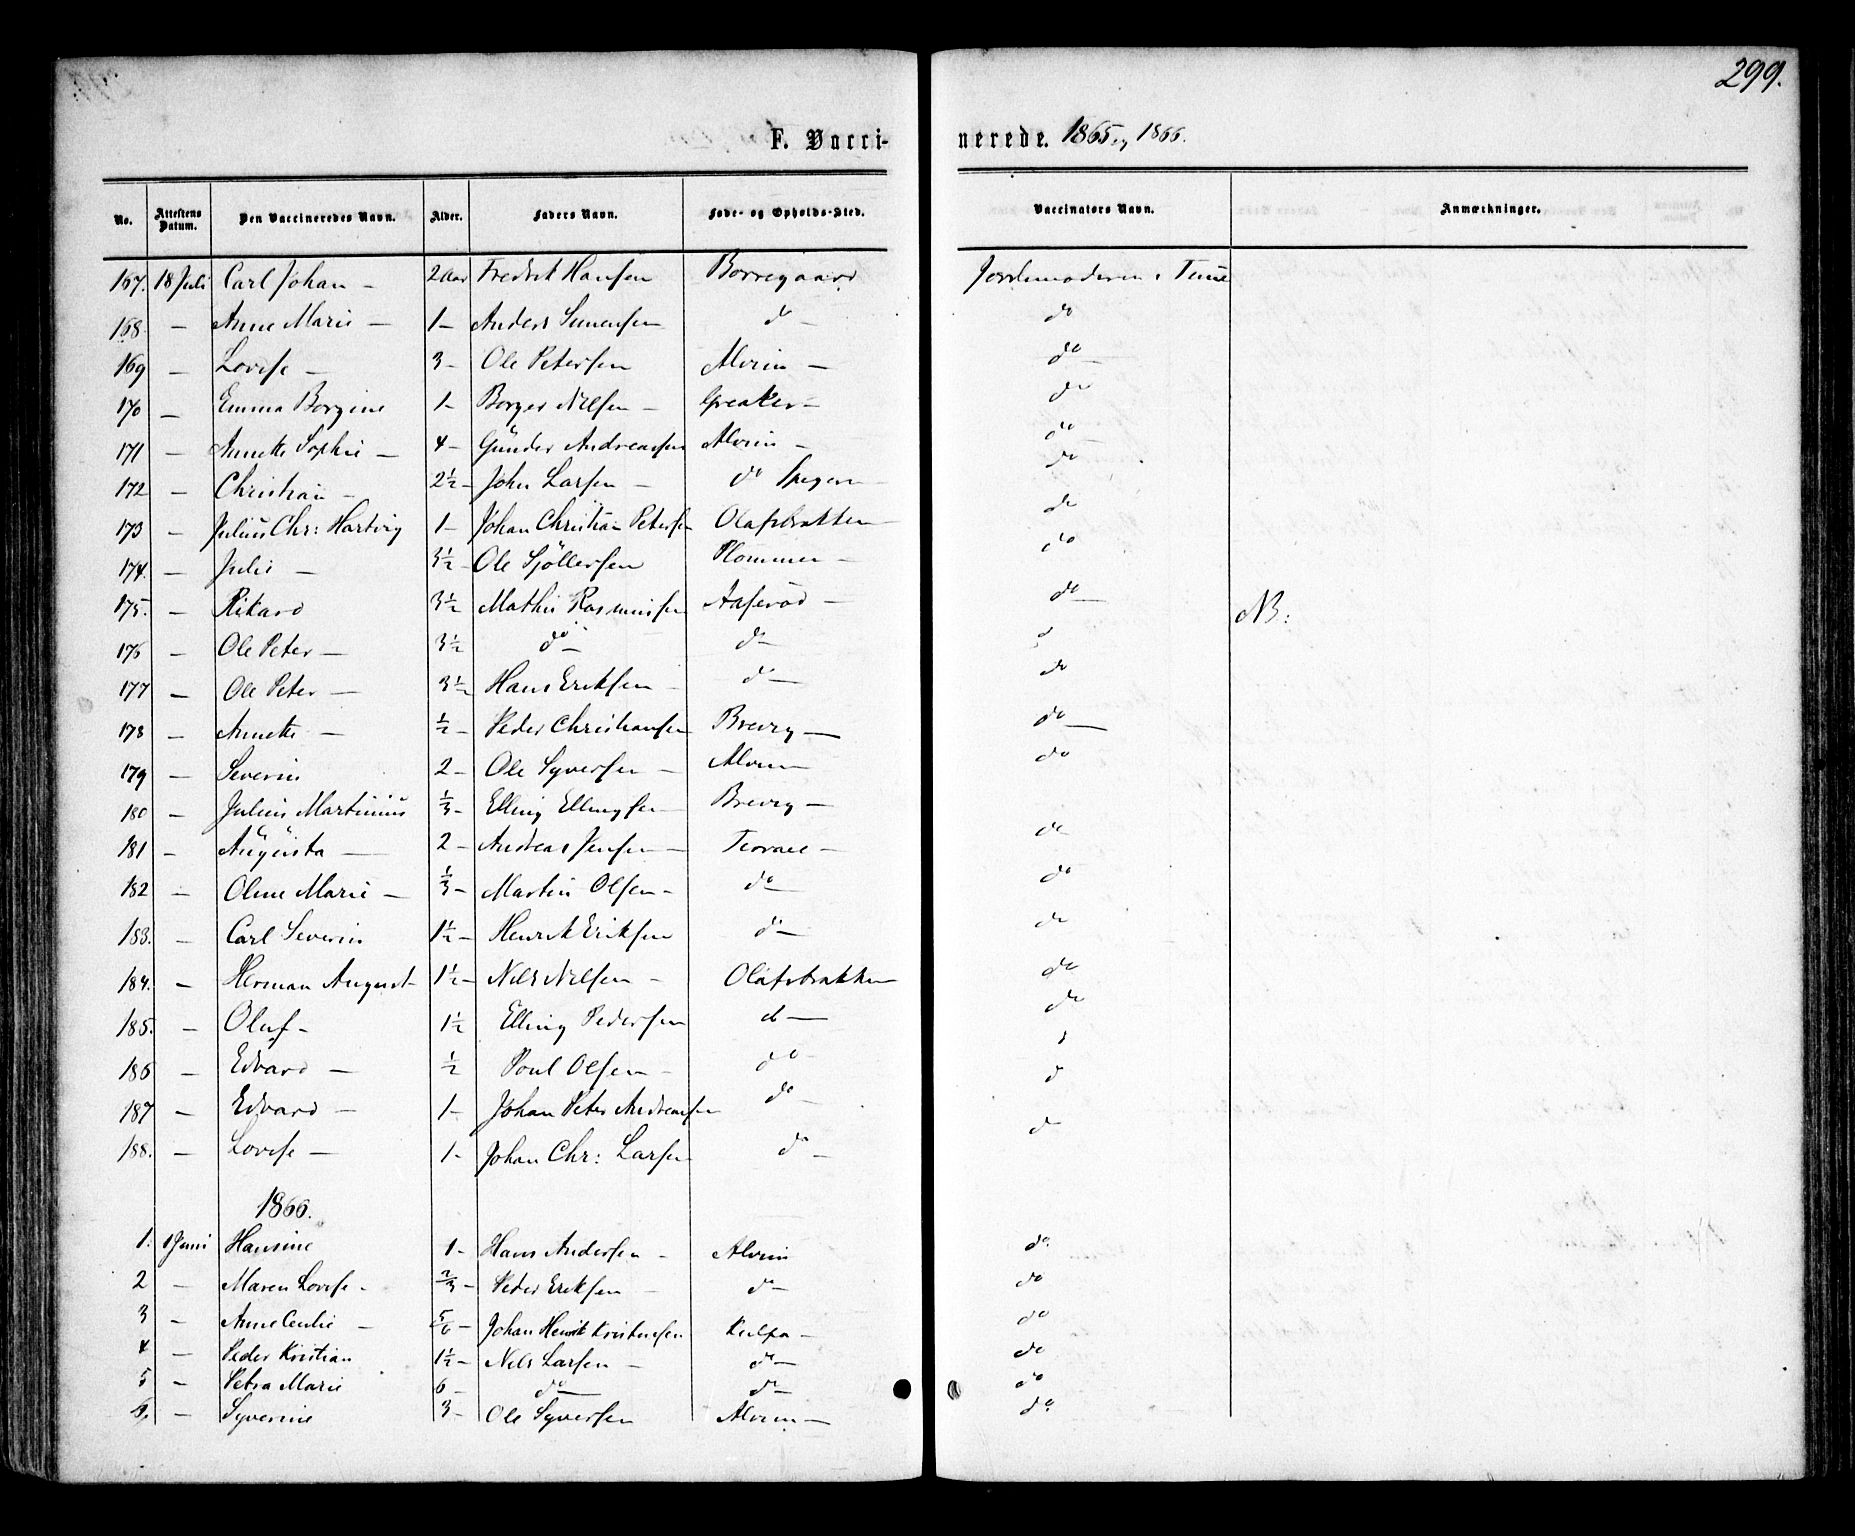 299.
F. Vacci- nerede. 1865 og 1866.
No. Attestens Datum. Den Vaccineredes Navn. Alder. Faders Navn. Føde- og Opholds-Sted. Vaccinators Navn. Anmærkninger.
167. 18 Juli Carl Johan - 2 Aar Fredrik Hansen Borregaard Jordemoderen i Tune
168. - Anne Marie - 1 - Anders Simensen do - do
169 - Lovise - 3 - Ole Petersen Alvim - do -
170 - Emma Borgine 1 - Borger Nilsen - Greaker - do
171 - Annette Sophie - 4 - Günder Andreassen Alvim - do
172 - Christian - 2½ - John Larsen - do do
173 - Julius Chr: Hartvig 1 - Johan Christian Petersen Olafsbrakken do
174. - Julie - 3½ - Ole Sjøllersen Plommen - do
175. - Rikard 3½ Mathis Rasmussen Aaserød - do - NB:
176 - Ole Peter - 3½ do - do - d
177 - Ole Peter - 3½ Hans Eriksen - do - do
178 - Annette - ½ - Peder Christiansen Brevig - do -
179 - Severin 2 - Ole Syversen - Alvim do
180 - Julius Martinius ⅓ - Elling Ellingsen Brevig -
181 - Augusta - 2 - Andreas Jensen - - do
182 - Oline Marie - ⅓ - Martin Olsen - do - do
183. - Carl Severin 1½ - Henrik Eriksen do - do
184. - Herman August - 1½ - Nils Nilsen - Olafsbrakken do
185. - Oluf - 1½ Elling Pedersen do - do
186 - Edvard - ½ Poul Olsen - do - d
187 - Edvard - 1 - Johan Peter Andreassen do - d
188. - Lovise - 1 - Johan Chr: Larsen do - do
1866.
1. 1 Juni Hansine 1 - Hans Andersen - Alvim do.
2 - Maren Lovise - ⅔ - Peder Eriksen - do - do
3 - Anne Cecilie - 5/6 - Johan Henrik Kristensen Kulpa - do
4 - Peder Kristian 1½ - Nils Larsen - do - do
5 - Petra Marie 6 - do - do - do
6. - Syverine 3 - Ole Syversen Alvim - do.